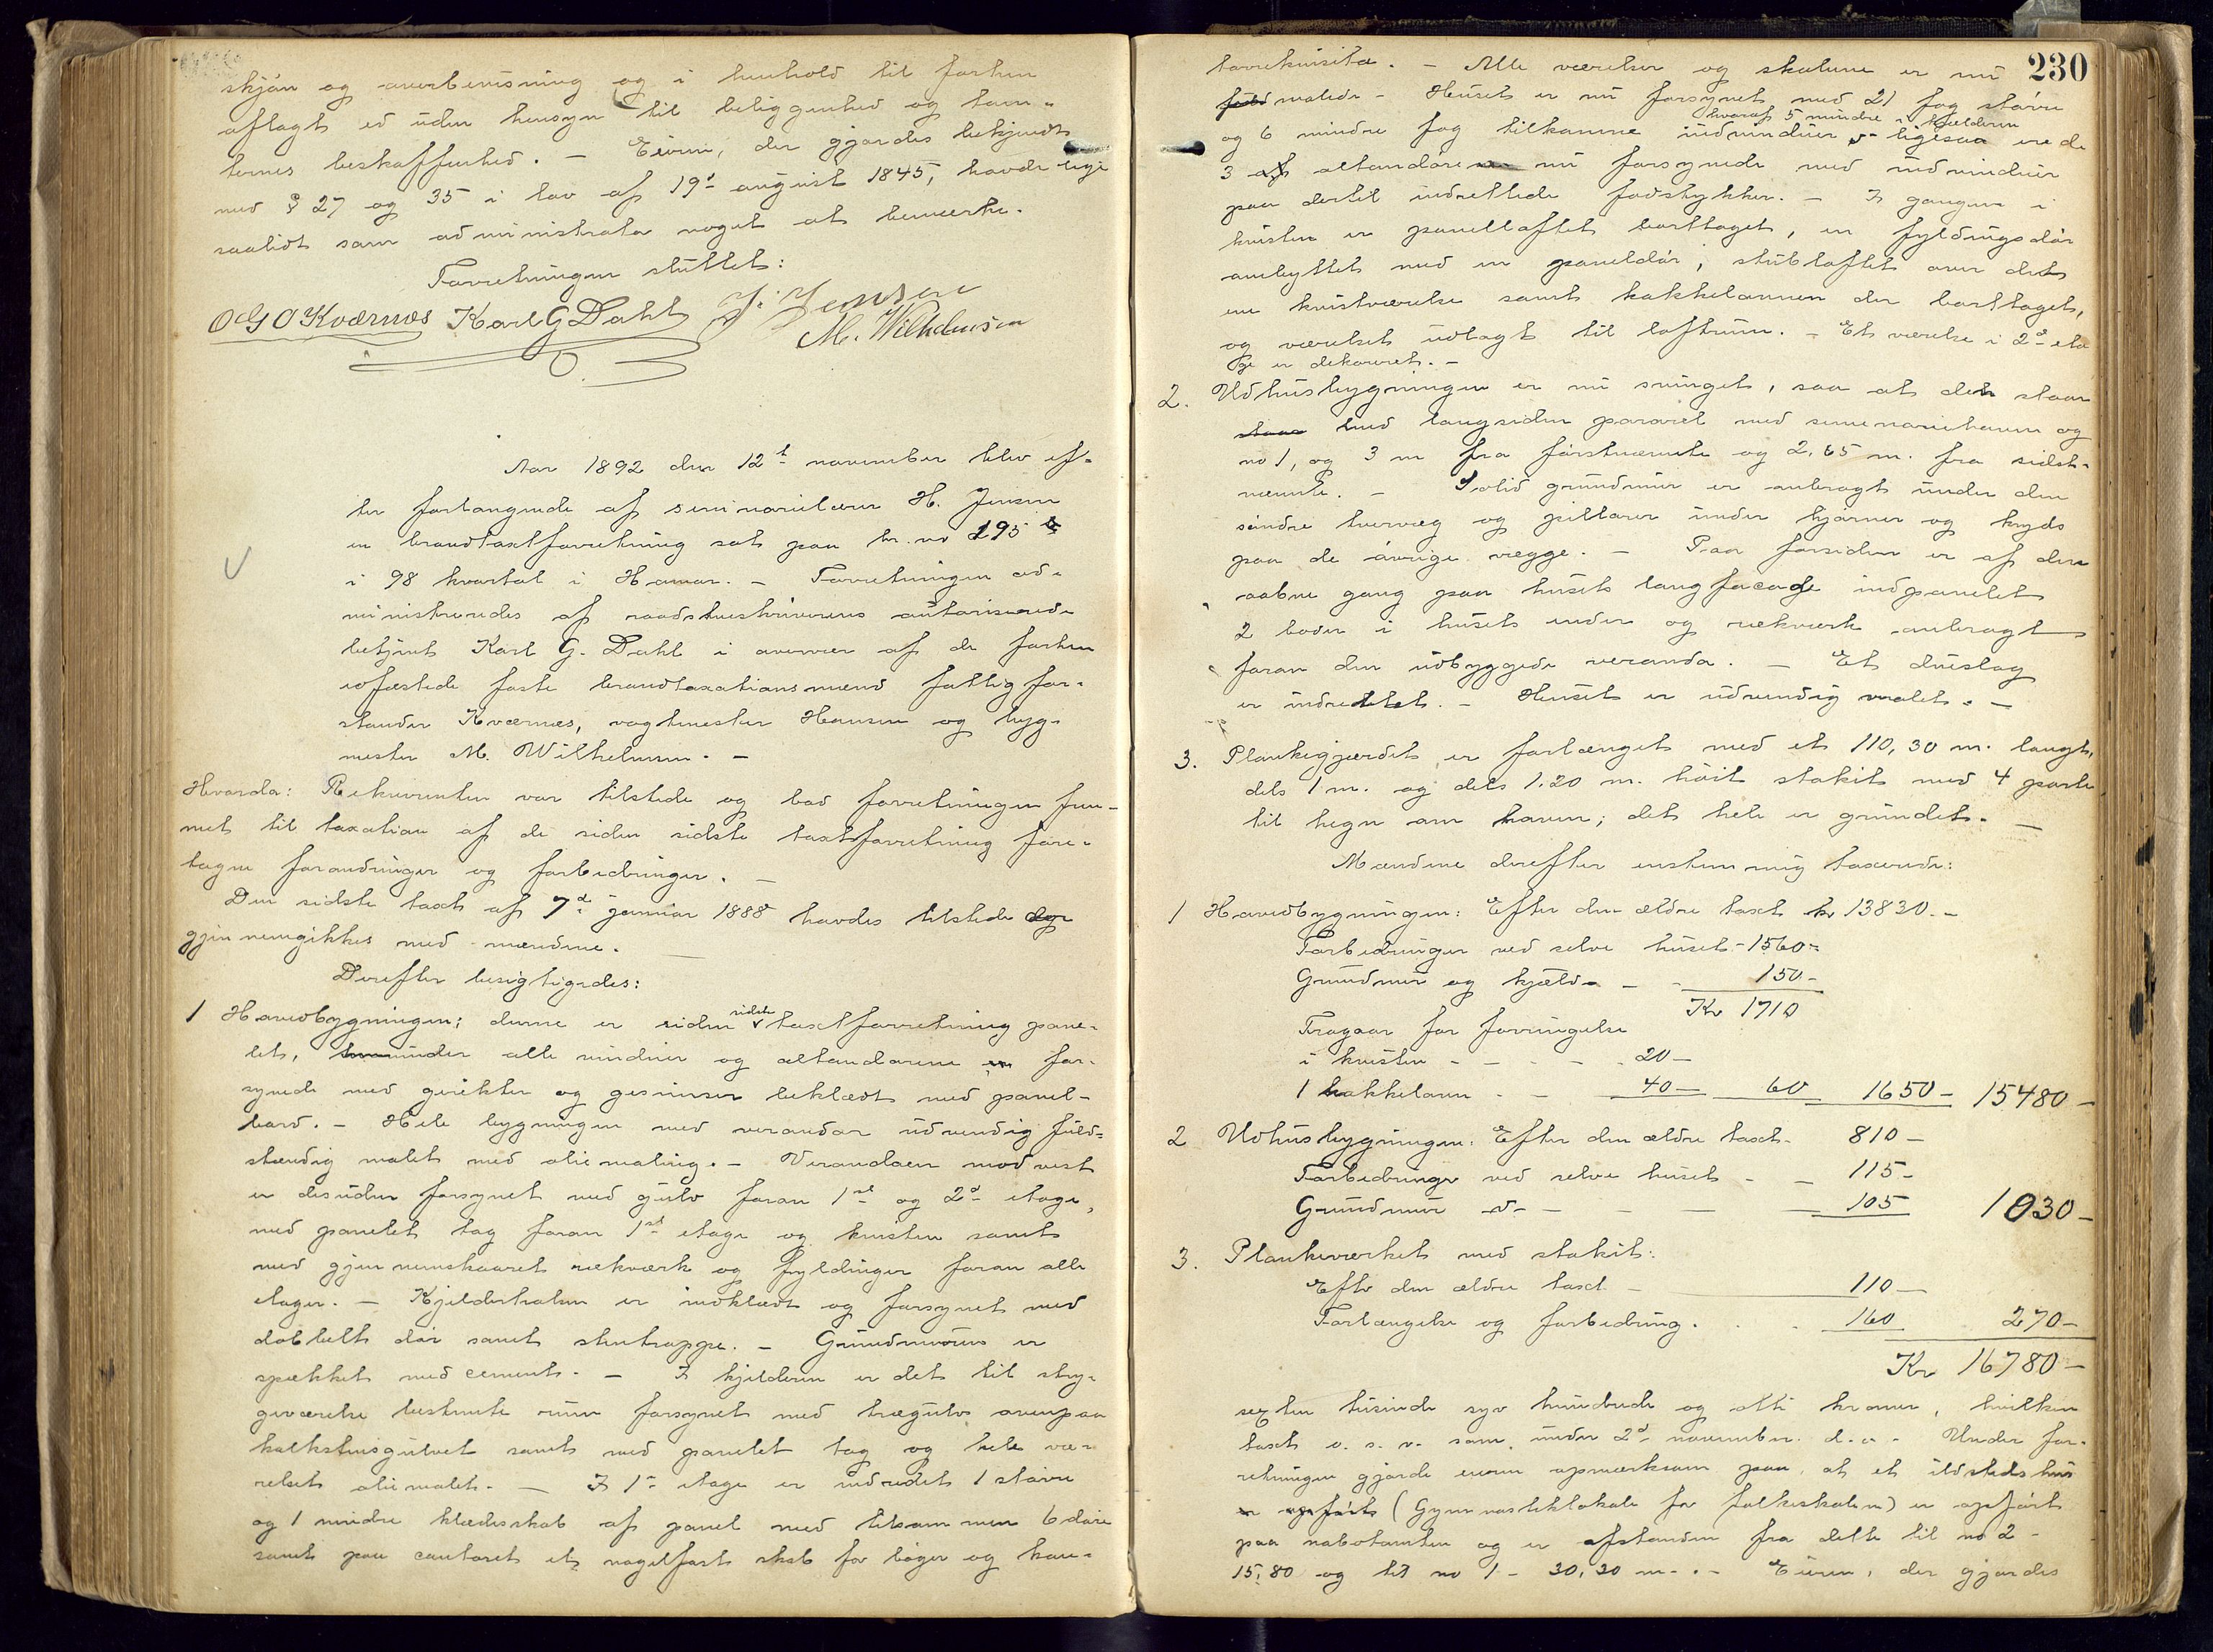 skjøn og overbevisning og i henhold til forhen
aflagt ed uden hensyn til beliggenhed og tom-
ternes beskaffenhed. – Eieren, der gjordes bekjendt
med § 27 og 35 i lov af 19d august 1845, havde lige
saalidt som administrator noget at bemærke.
Forretningen sluttet:
O G O Kværnæs Karl G Dahl J. Jensen
M. Wilhelmsen
Aar 1892 den 12t november blev ef-
ter forlangende af seminarielærer H. Jensen
en brandtaxtforretning sat paa br. no 195 b
i 98 kvartal i Hamar. – Forretningen ad-
ministreredes af raadstueskriverens autoriserede
betjent Karl G. Dahl i overvær af de forhen
edfæstede faste brandtaxationsmænd fattigfor-
stander Kværnæs, vagtmester Hansen og byg-
mester M. Wilhelmsen. –
Hvorda: Rekvirenten var tilstede og bad forretningen frem-
met til taxation af de siden sidste taxtforretning fore-
tagne forandringer og forbedringer. –
Den sidste taxt af 7de januar 1888 havdes tilstede og
gjennemgikkes med mændene. –
Derefter besigtigedes:
1 Hovedbygningen; denne er siden sidste taxtforretning pane-
let, under alle vinduer og altandørene er for-
synede med gerikter og gesimser beklædt med panel-
bord. – Hele bygningen med verandaer udvendig fuld-
stændig malet med oliemaling. – Verandaen mod vest
er desuden forsynet med gulv foran 1ste og 2d etage,
med panelet tag foran 1ste etage og kvisten samt
med gjennemskaaret rækværk og fyldinger foran alle
etager. – Kjelderhalsen er indklædt og forsynet med
dobbelt dør samt stentrappe. – Grundmuren er
spækket med cement. – I kjelderen er det til stry-
geværelse bestemte rum forsynet med trægulv ovenpaa
kalkstensgulvet samt med panelet tag og hele væ-
relset oliemalet. – I 1– etage er indredet 1 større
og 1 mindre klædeskab af panel med tilsammen 6 døre
samt paa contoret et nagelfast skab for bøger og kon-
230
torrekvisita. – Alle værelser og skabene er nu
malede – Huset er nu forsynet med 21 fag større
hvoraf 5 mindre i kjelderen
og 6 mindre fag tilkomne indvinduer – ligesaa ere de
3 altandøre nu forsynede med indvinduer
paa dertil indrettede fodstykker. – I gangen i
kvisten er panelloftet borttaget, en fyldingsdør
ombyttet med en paneldør; stubloftet over det
ene kvistværelse samt kakkelovnen der borttaget,
og værelset udlagt til loftrum. – Et værelse i 2d eta
ge er dekoreret. –
2. Udhusbygningen er nu svinget, saa at den staar
med langsiden pararel med seminariehaven og
no 1, og 3 m fra førstnævnte og 2,65 m. fra sidst-
nævnte. – Solid grundmur er anbragt under den
søndre tvervæg og pillarer under hjørner og kryds
paa de øvrige vægge. – Paa forsiden er af den
aabne gang paa husets langfacade indpanelet
2 boder i husets ender og rækværk anbragt
foran den udbyggede veranda. – Et dueslag
er indredet. – Huset er udvendig malet. –
3. Plankegjærdet er forlænget med et 110,30 m. langt,
dels 1 m. og dels 1.20 m. høit stakit med 4 porte
til hegn om haven; det hele er grundet. –
Mændene derefter enstemmig taxerede:
1 Hovedbygningen: Efter den ældre taxt kr 13830. –
Forbedringer ved selve huset – 1560 –
Grundmur og kjeld. – – 150 –
Kr 1710
Fragaar for forringelse
i kvisten – – – – 20 –
1 kakkelovn – – 40 – 60 1650 – 15480 –
2 Udhusbygningen: Efter den ældre taxt – 810 –
Forbedringer ved selve huset – – 115 –
Grundmur –d– – – – 105 1030 –
3. Plankeværket med stakit:
Efter den ældre taxt – 110 –
Forlængelse og forbedring. 160 270 –
Kr 16780 –
sexten tusinde syv hundrede og otti kroner, hvilken
taxt o. s. v. som under 2d november d. a. – Under for-
retningen gjorde eieren opmærksom paa, at et ildstedshus
(Gymnastiklokale for folkeskolen) er opført
paa nabotomten og er afstanden fra dette til no 2 –
15,80 og til no 1 – 30,30 m. – Eieren, der gjordes